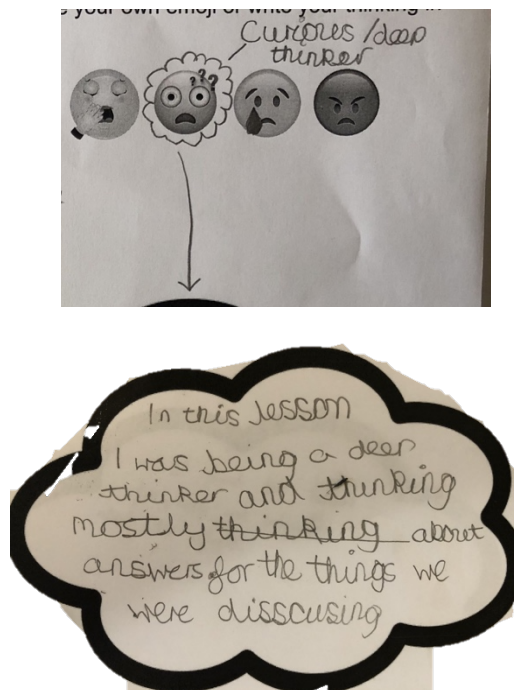 your own emoji or write your thinking in
Curious / deep
thinker
??
In this lesson
I was being a deep
thinker and thinking
mostly thinking about
answers for the things we
were disscusing